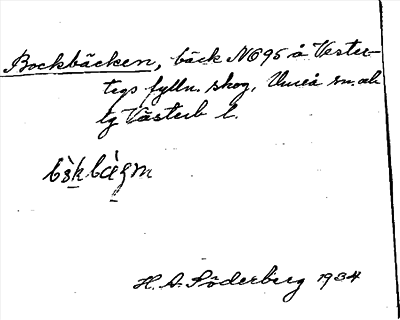 Bockbäcken, bäck N695 å Vester-
tegs fylln. skog, Umeå sn. och
tg Västerb l.
H. A. Söderberg 1934